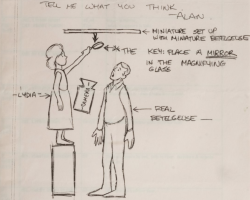 TELL ME WHAT YOU THINK
-ALAN.
MINIATURE SET UP
WITH MINIATURE BETELGEUSE
THE KEY: PLACE A MIRROR
IN THE MAGNIFYING
GLASS
LYDIA
CAMERA
REAL
BETELGEUSE